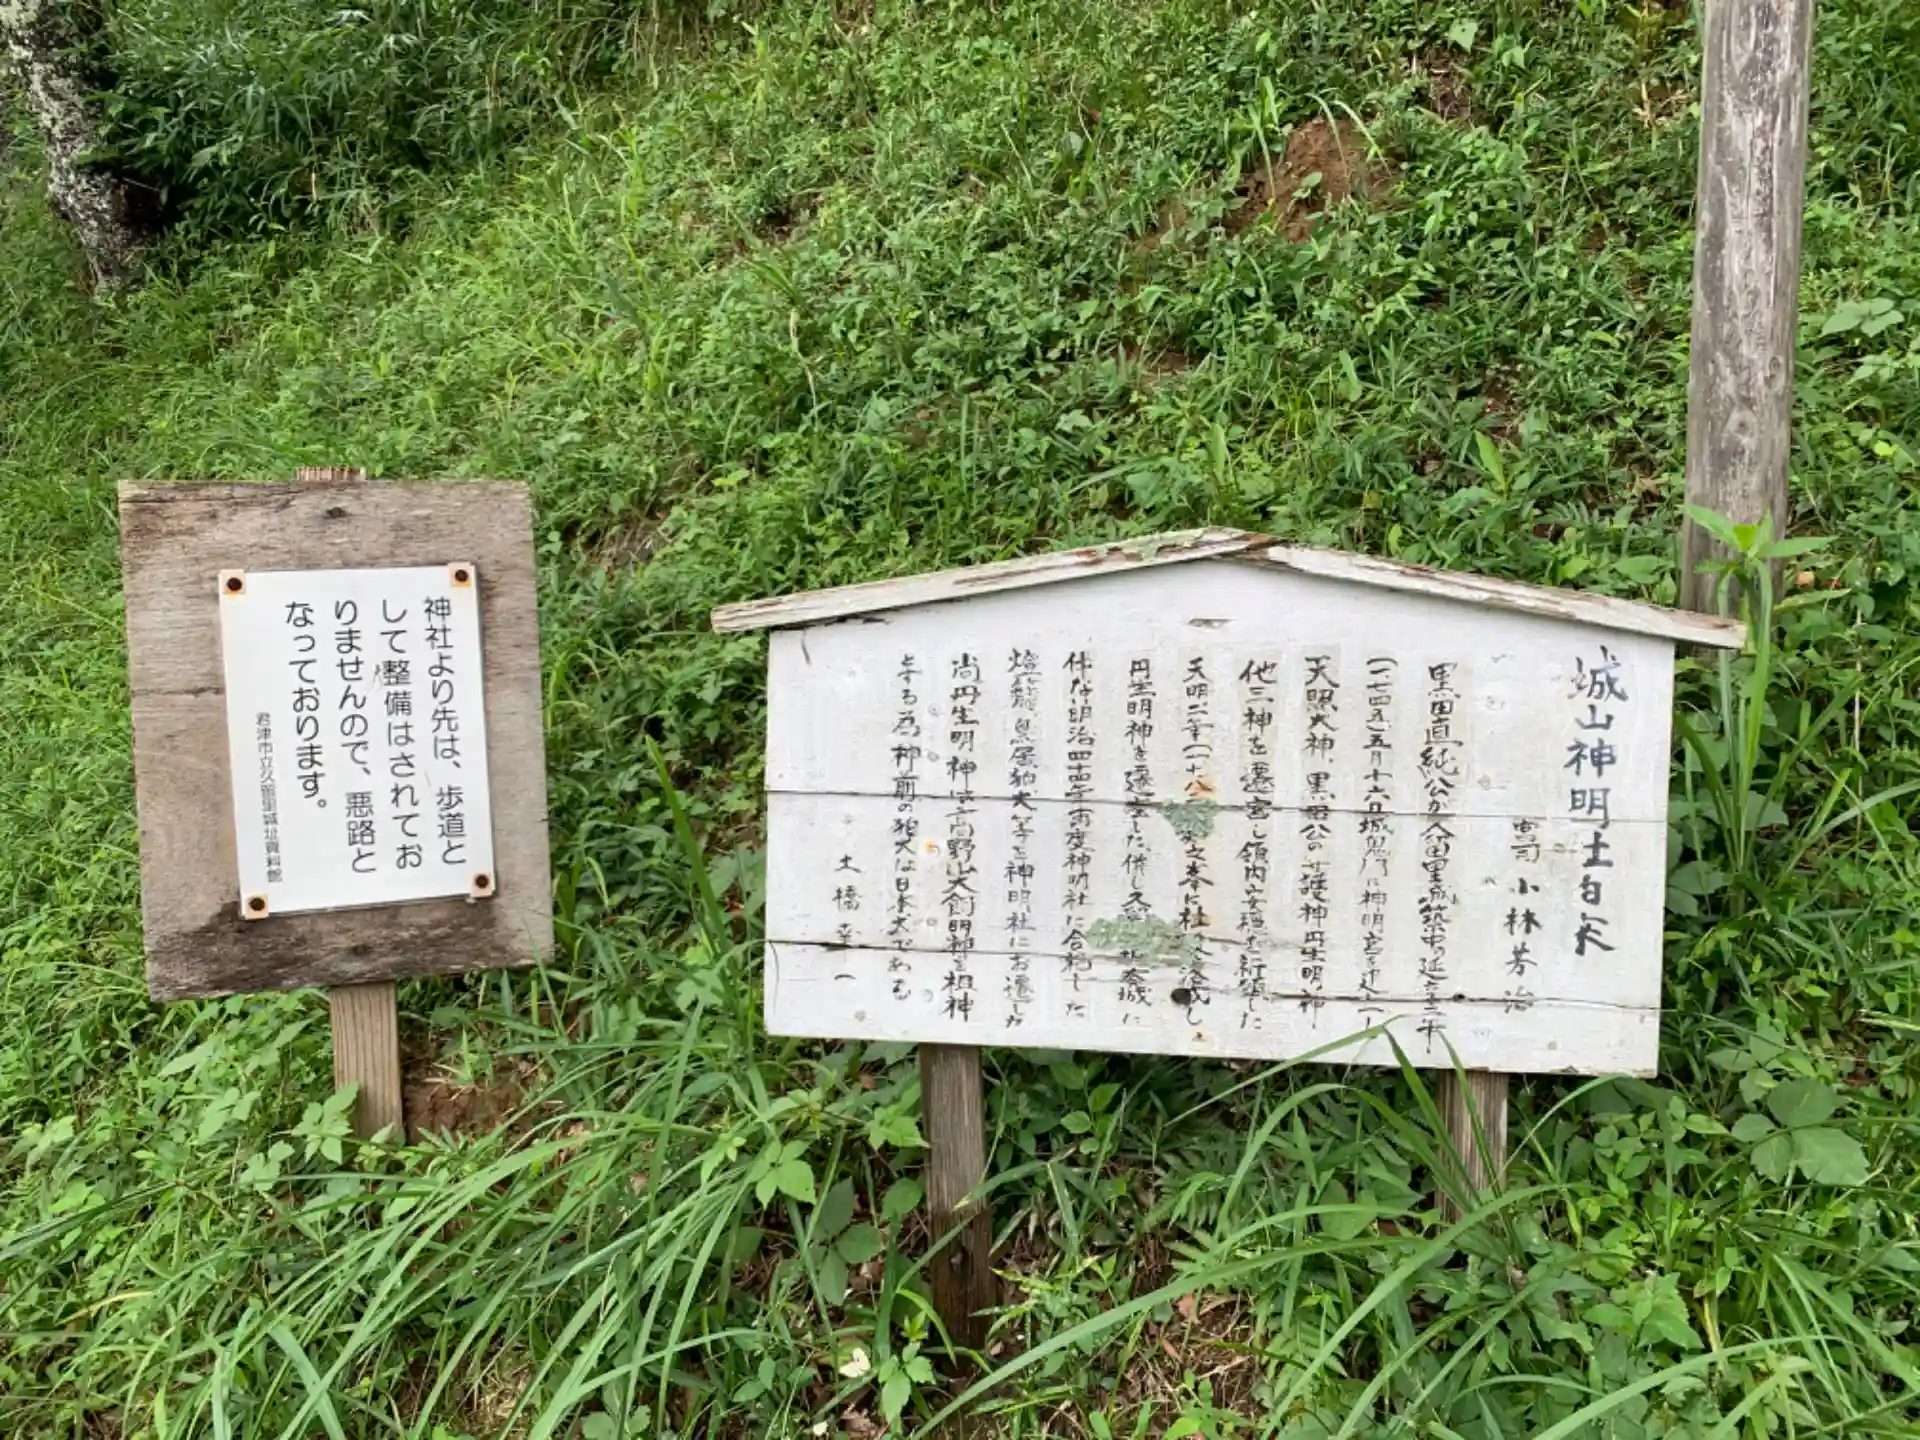 神社より先は、歩道と
して整備はされてお
りませんので、悪路と
なっております。
君津市立久留里城址資料館
城山神明社由来
小林芳治
黒田直純公が久留里城築中の延享二年
(一七四五)五月十六日城鬼門に神明宮を
天照大神、黒田公の護神丹生明神
他三神を遷宮し領内安穏を祈願した
天明二年(一七八 之春に社 落成し
丹生明神を遷 した、併し久
件な明治四十四年再度神明社に合祀した
燈籠、鳥居狛犬等を神明社にお遷しか
尚丹生明神は高野山大 明神を祖神
とする為神前の狛犬は日本犬である
土橋 一